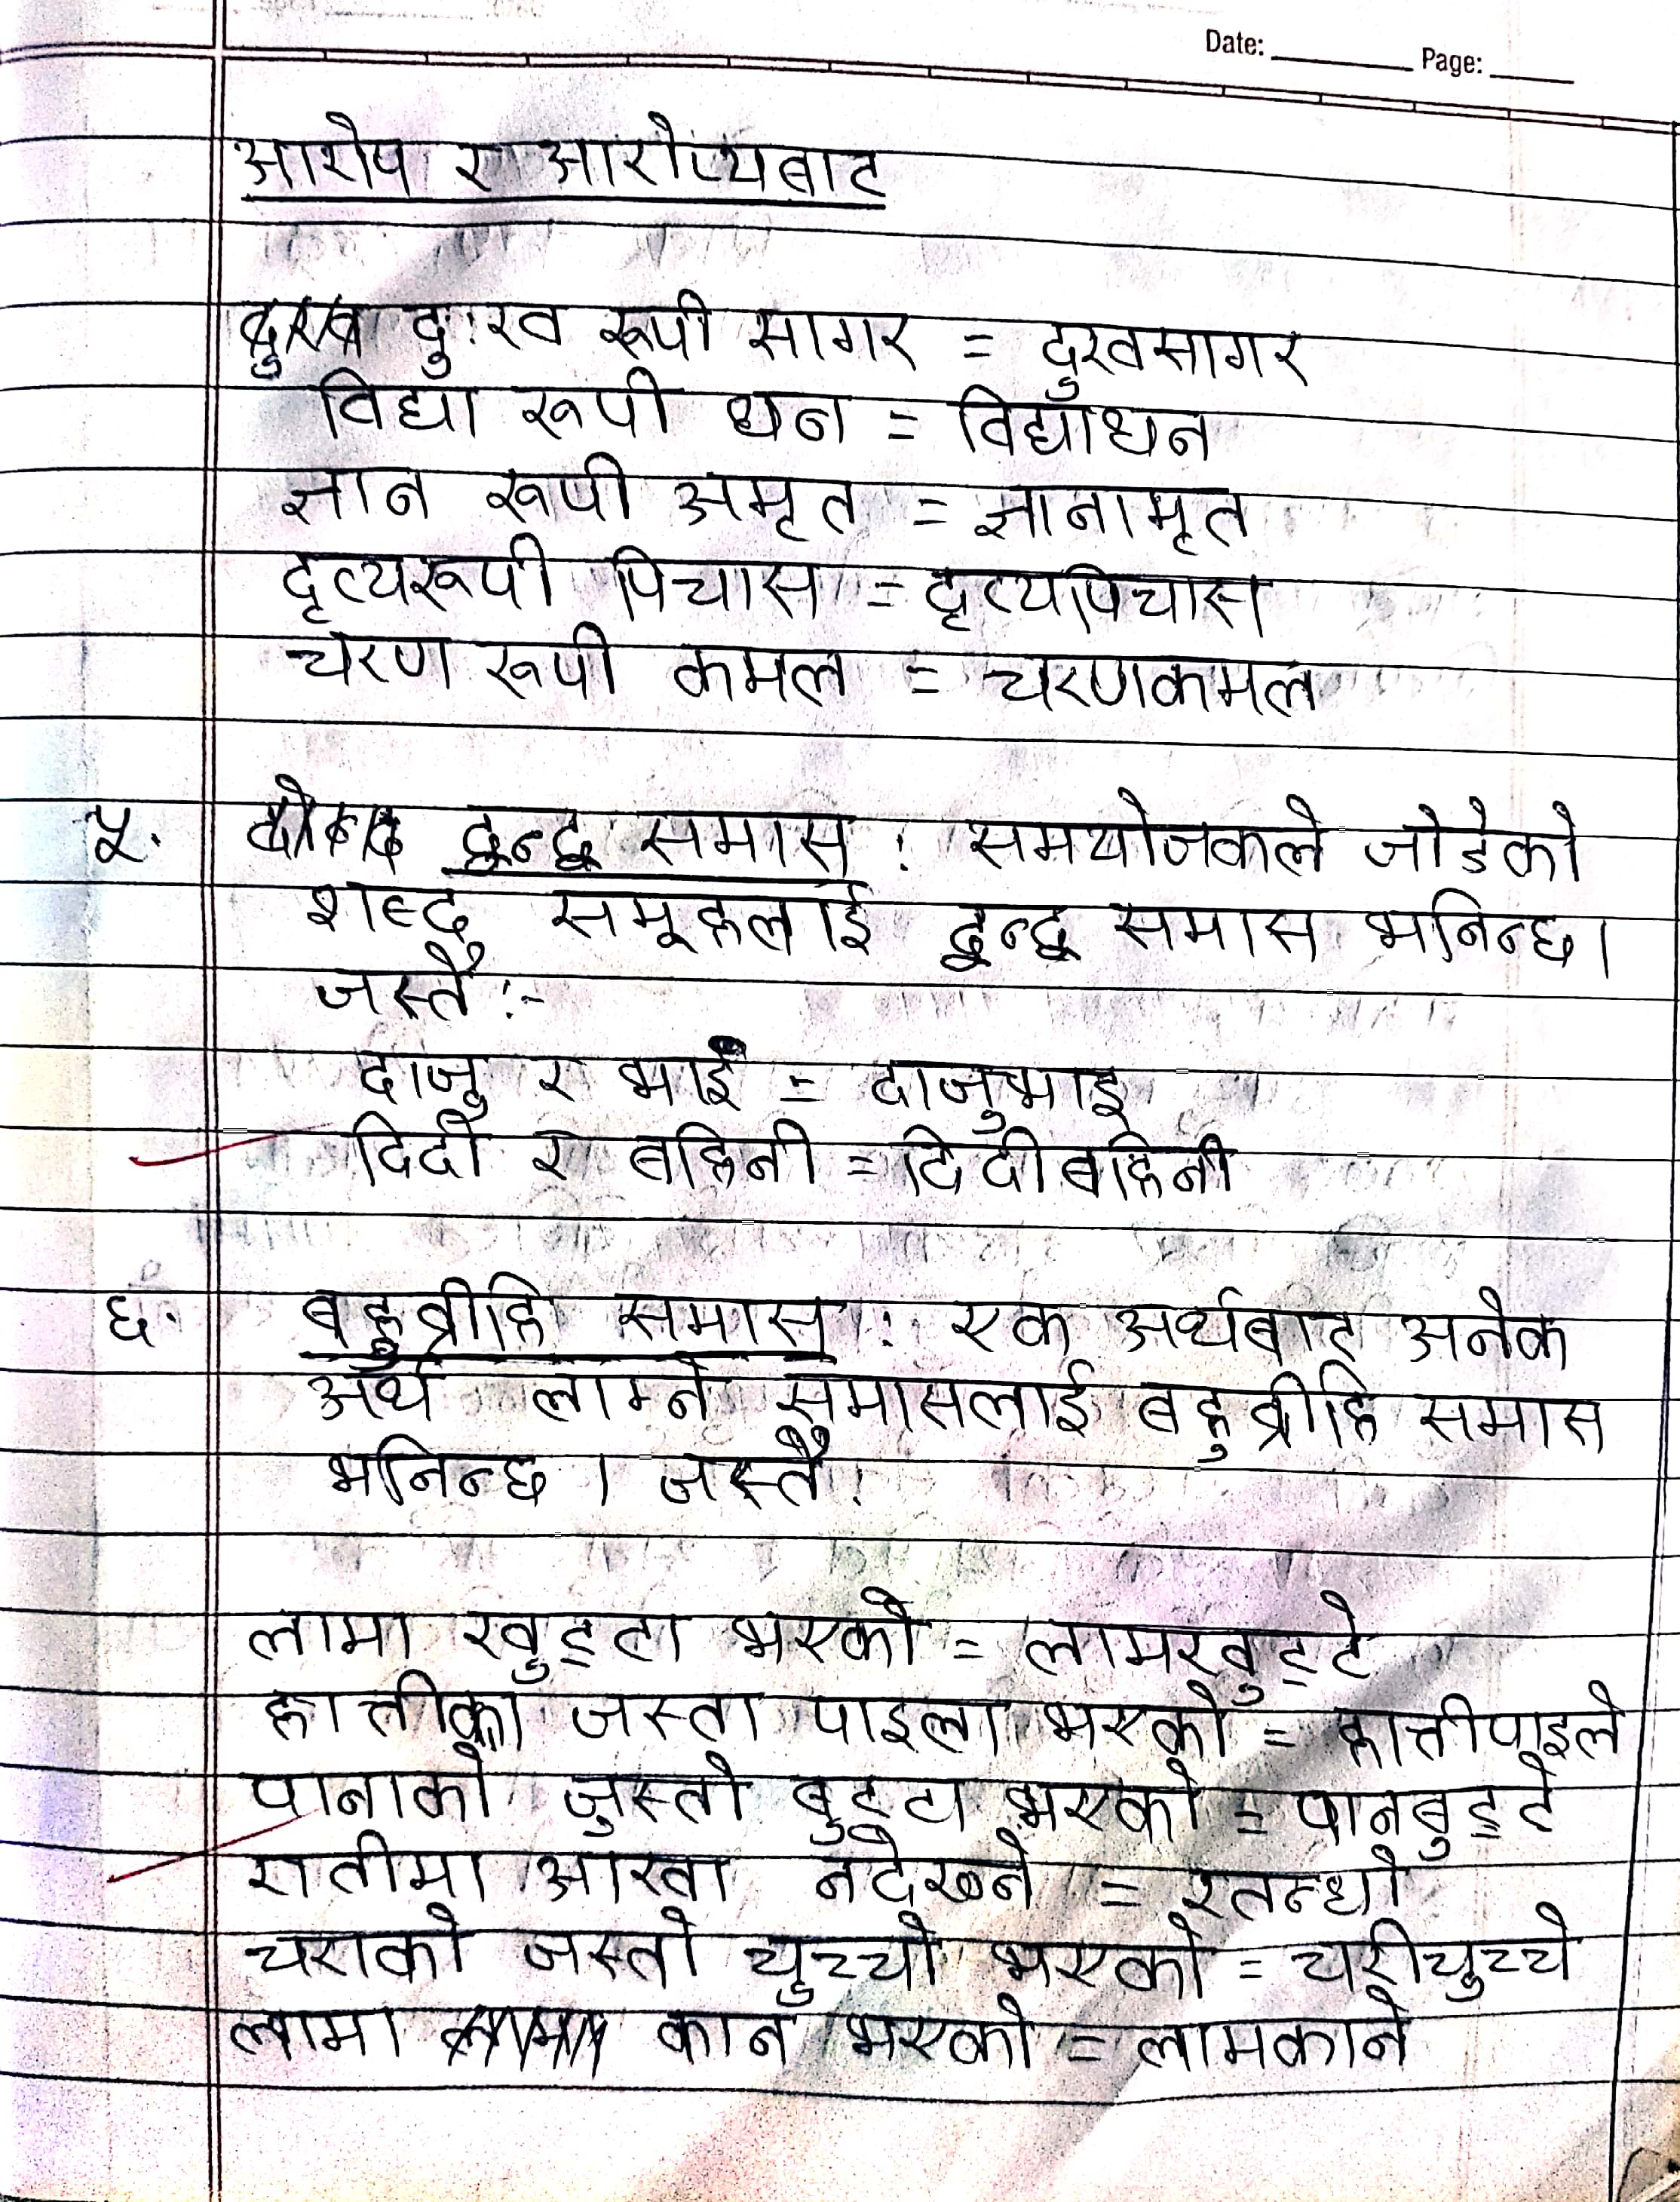 Date: Page:
आरोप र आरोप्यबाट
दुःख रूपी सागर = दुखसागर
विद्या रूपी धन = विद्याधन
ज्ञान रूपी अमृत = ज्ञानामृत
दृव्यरूपी पिचास = दृव्यपिचास
चरण रूपी कमल = चरणकमल
५. द्वन्द्व समास : समयोजकले जोडेको
शब्द समूहलाई द्वन्द्व समास भनिन्छ।
जस्तै :-
दाजु र भाइ = दाजुभाइ
दिदी र बहिनी = दिदीबहिनी
६. बहुव्रीहि समास : एक अर्थबाट अनेक
अर्थ लाग्ने समासलाई बहुव्रीहि समास
भनिन्छ । जस्तै :
लामा खुट्टा भएको = लामखुट्टे
हात्तीका जस्ता पाइला भएको = हात्तीपाइले
पानाको जुस्तो बुट्टा भएको = पानबुट्टे
रातीमा आखा नदेख्ने = रतन्धो
चराको जस्तो चुच्चो भएको = चरीचुच्चे
लामा कान भएको = लामकाने